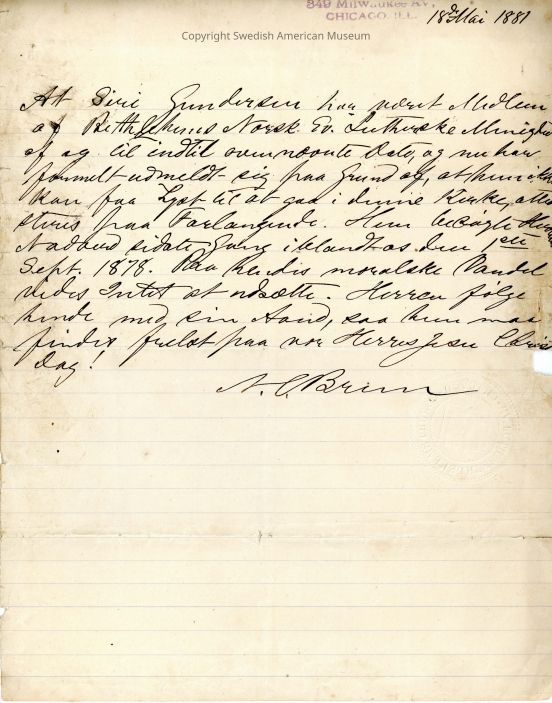 349 Milwaukee Av,
CHICAGO, ILL.
18de Mai 1881
Copyright Swedish American Museum
At Siri Gundersen har været Medlem
af Bethlehems Norsk Ev. Lutherske Menighed
og til indtil ovennævnte Dato, og nu har
formelt udmeldt sig paa Grund af, at hun ikke
kan faa Lyst til at gaa i denne Kirke,
paa Forlangende. Hun
Nadverd sidste Gang iblandt os den 1ste
Sept. 1878. Paa hendes moralske Vandel
vides Intet at udsætte. Herren følge
hende med sin Aand, saa hun maa
findes frelst paa vor Herres Jesu Christi
Dag!
N. C. Brun